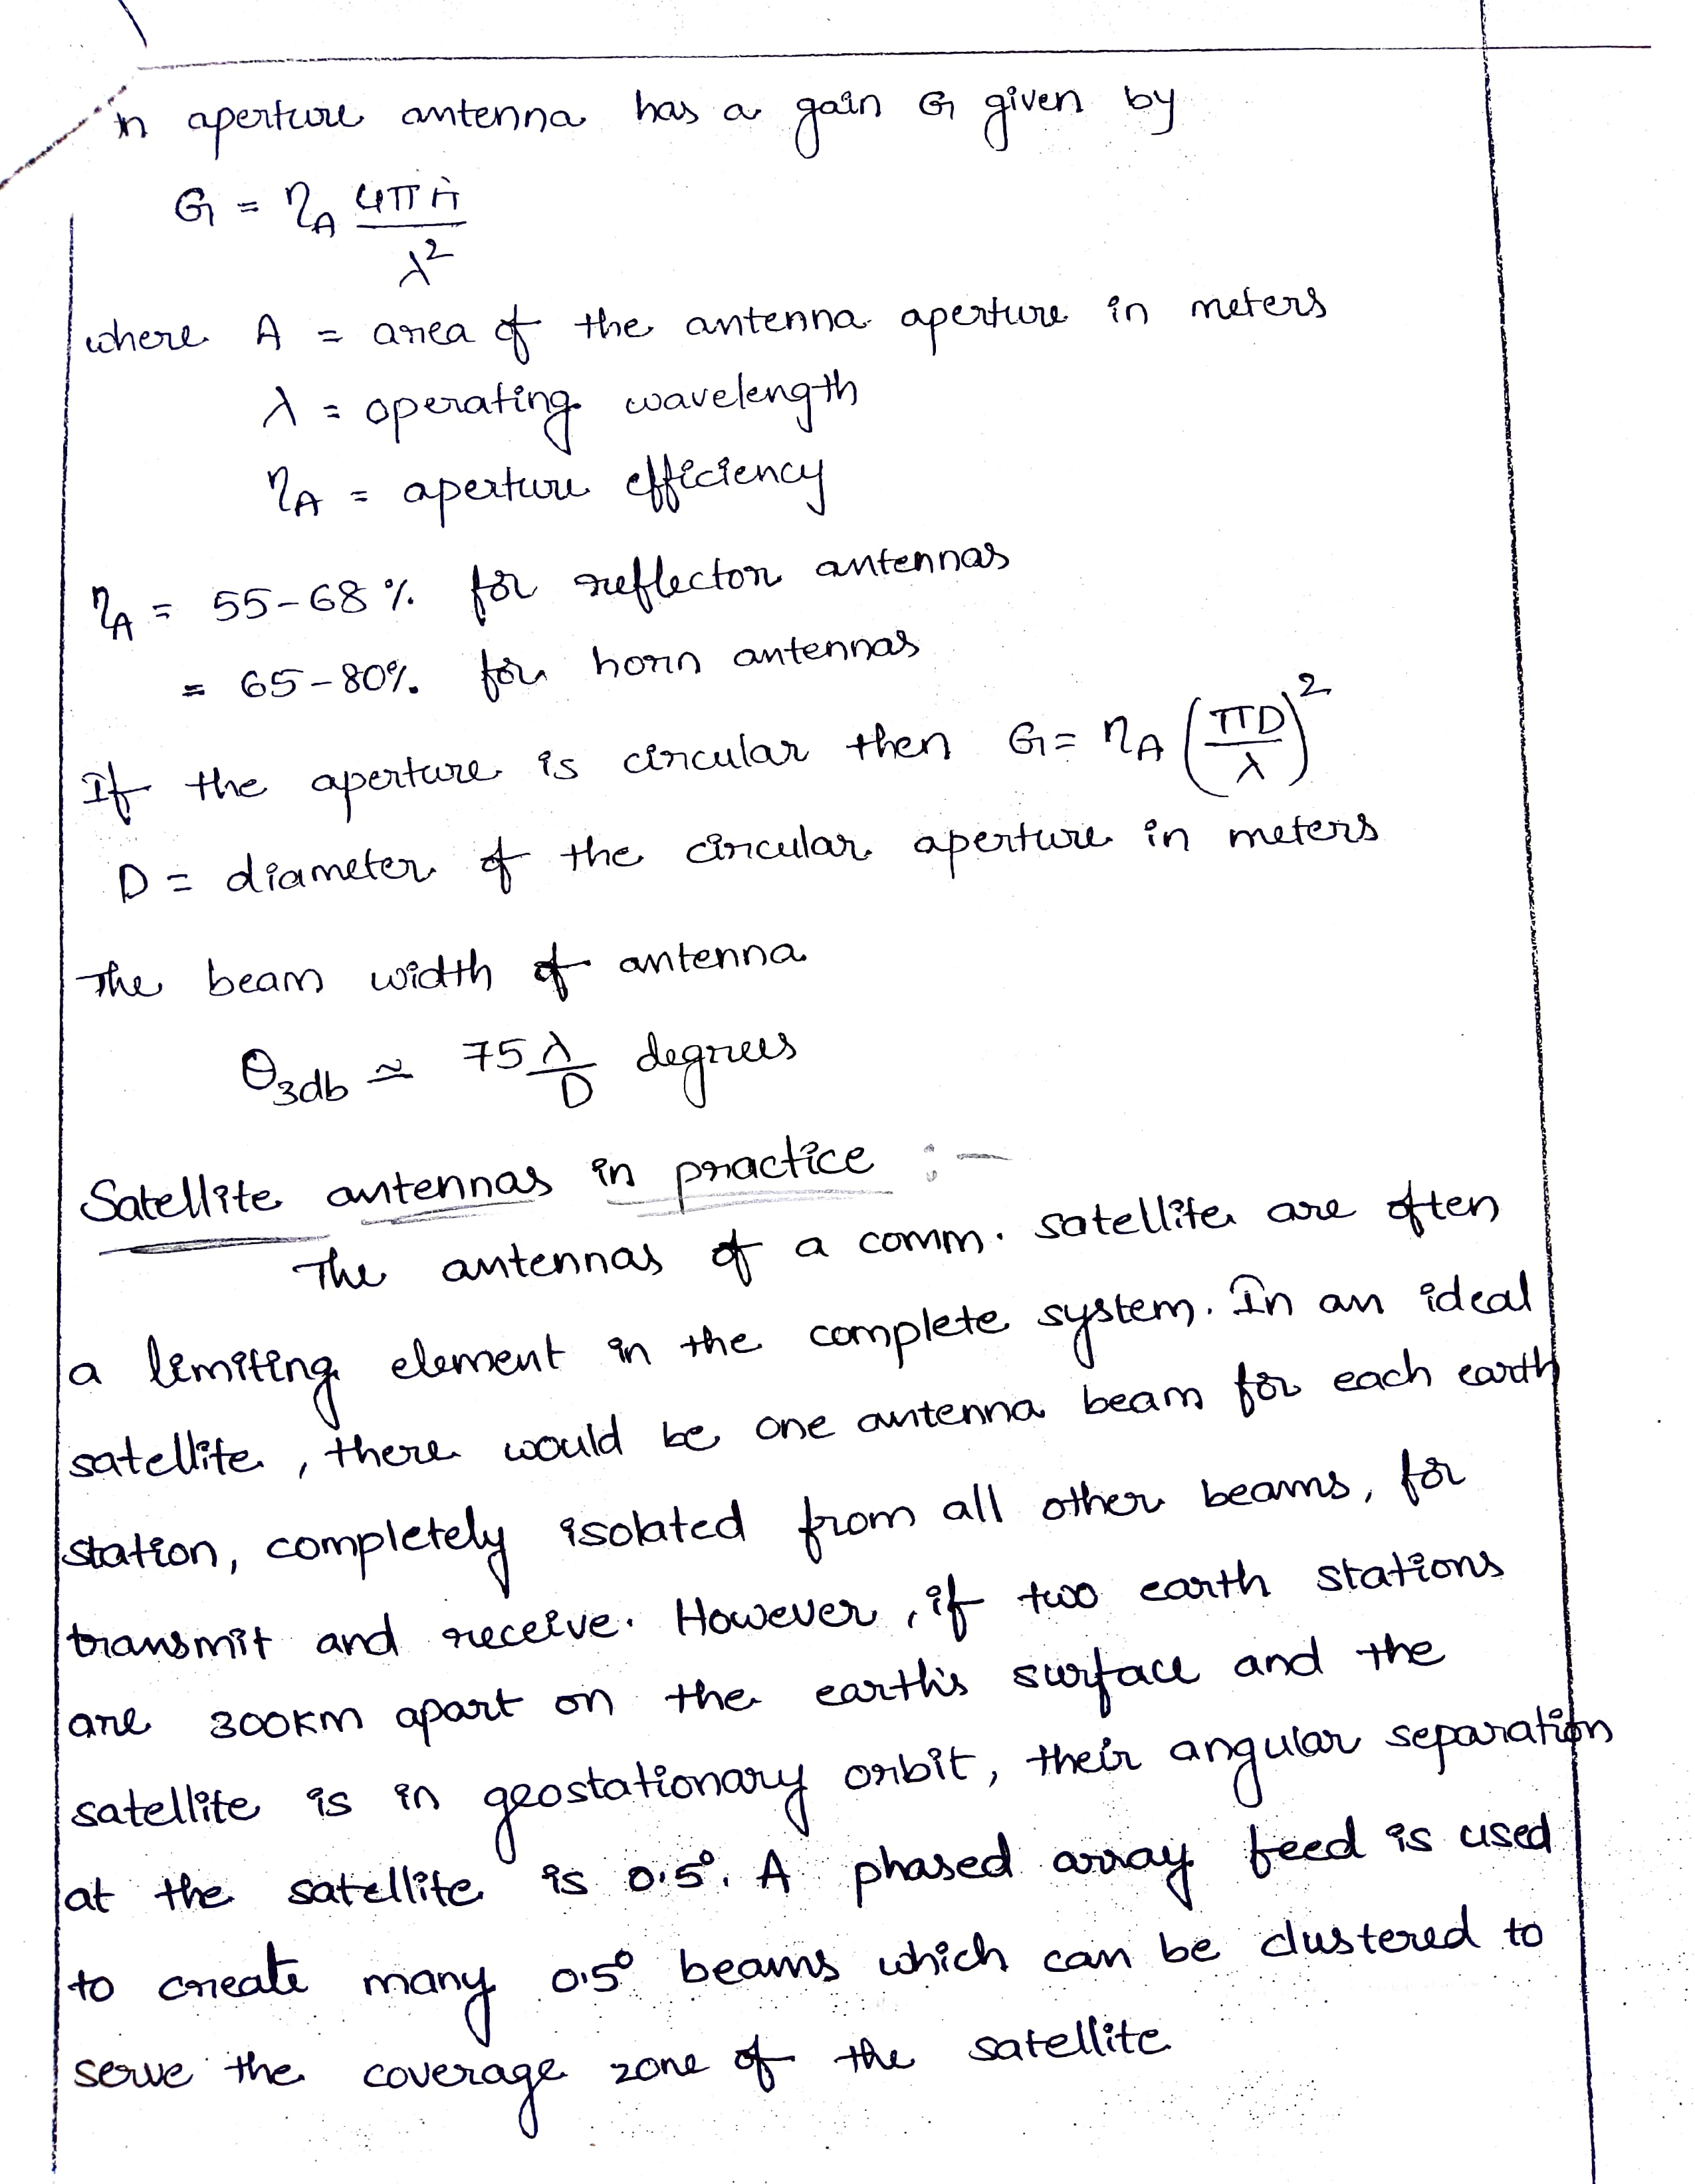 n aperture antenna has a gain G given by
G = η_A 4πA / λ²
where A = area of the antenna aperture in meters
λ = operating wavelength
η_A = aperture efficiency
η_A = 55-68 % for reflector antennas
= 65-80% for horn antennas
If the aperture is circular then G = η_A (πD/λ)²
D = diameter of the circular aperture in meters
The beam width of antenna
θ_3db ≃ 75 λ/D degrees
Satellite antennas in practice :-
The antennas of a comm. satellite are often
a limiting element in the complete system. In an ideal
satellite, there would be one antenna beam for each earth
station, completely isolated from all other beams, for
transmit and receive. However, if two earth stations
are 300KM apart on the earth's surface and the
satellite is in geostationary orbit, their angular separation
at the satellite is 0.5°. A phased array feed is used
to create many 0.5° beams which can be clustered to
serve the coverage zone of the satellite